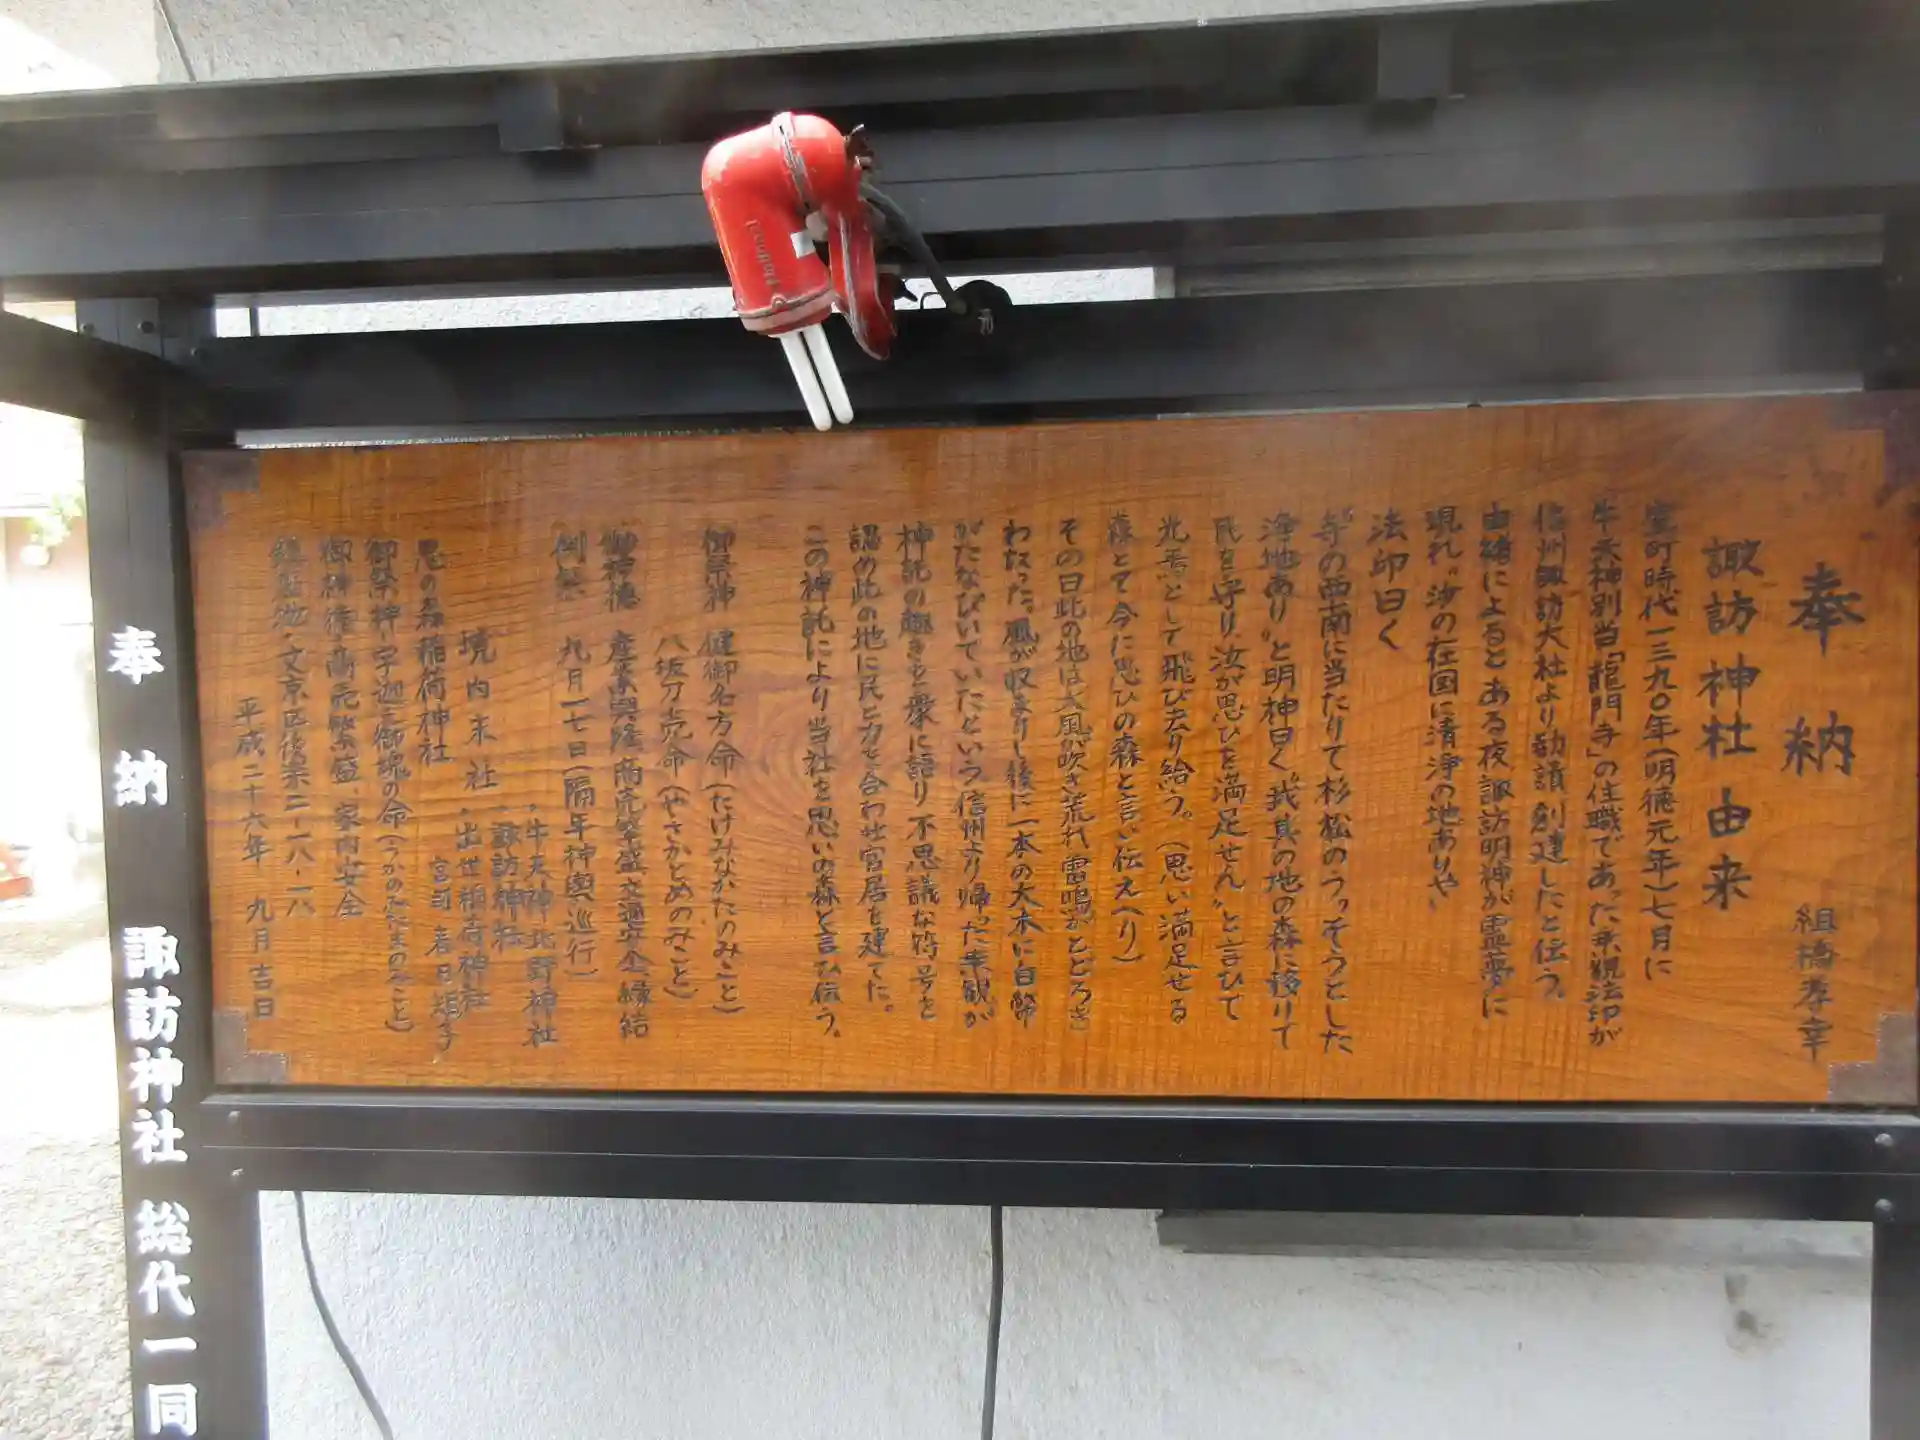 奉納 組橋孝幸
諏訪神社由来
室町時代一三九〇年(明徳元年)七月に
牛天神別当「龍門寺」の住職であった承観法印が
信州諏訪大社より勧請創建したと伝う。
由緒によるとある夜諏訪明神が霊夢に
現れ〝汝の在国に清浄の地ありや〟
法印曰く
〝寺の西南に当たりて杉松のうっそうとした
浄地あり〟と明神曰く〝我其の地の森に移りて
民を守り汝が思ひを満足せん〟と言ひて
光馬として飛び去り給う。(思い満足せる
森とて今に思ひの森と言い伝えへり)
その日此の地は大風が吹き荒れ雷鳴がとどろき
わたった。風が収まりし後に一本の大木に白幣
がたなびいていたという信州より帰った承観が
神託の趣きを衆に語り不思議な符号と
認め此の地に民と力を合わせ宮居を建てた。
この神託により当社を思いの森と言ひ伝う。
御祭神 健御名方命(たけみなかたのみこと)
八坂刀売命(やさかとめのみこと)
御神徳 産業興隆、商売繁盛、交通安全、縁結
例祭 九月二七日(隔年神輿巡行)
境内末社 ・牛天神北野神社
・諏訪神社
・出世稲荷神社
思の森稲荷神社 宮司 春日
御祭神・宇迦之御魂の命(うかのみたまのみこと)
御神徳・商売繁盛、家内安全
鎮座地・文京区後楽二-一八-一八
平成二十六年 九月吉日
奉納 諏訪神社 総代一同